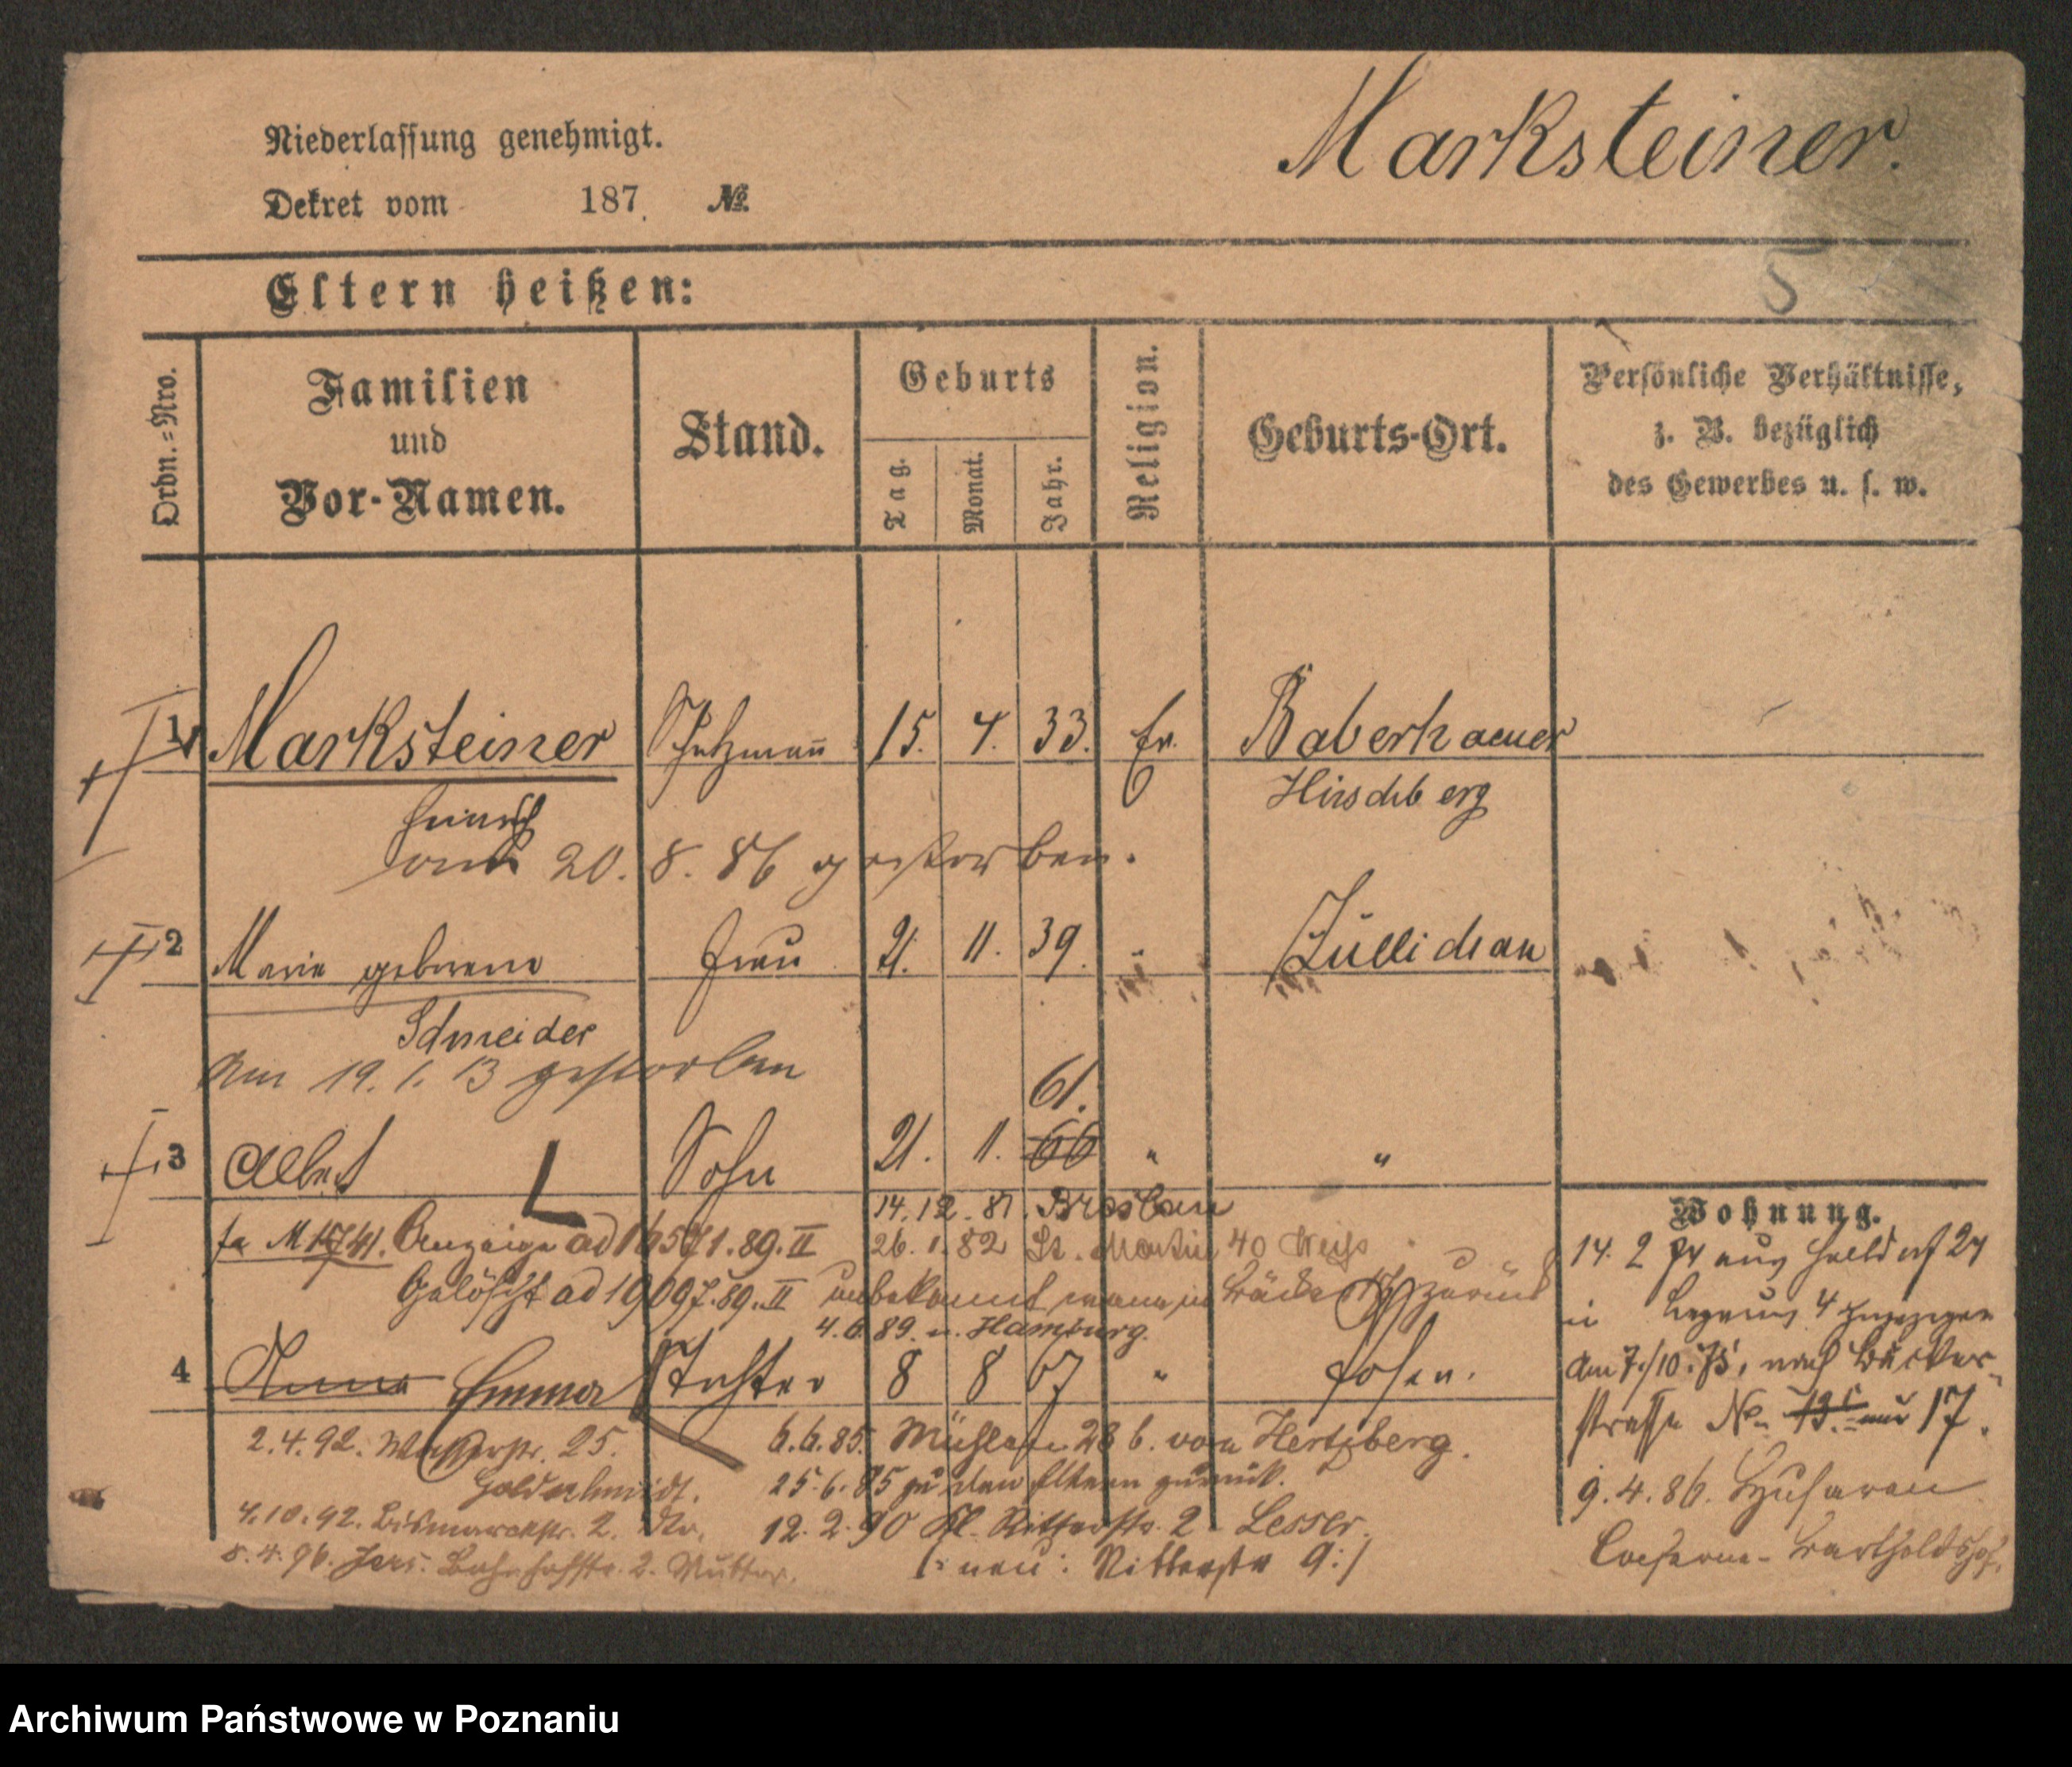 Marksteiner.
Niederlassung genehmigt.
Dekret vom 187 №
5
Eltern heißen:
Ordn.=Nro.
Familien und Vor-Namen.
Stand.
Geburts
Tag.
Monat.
Jahr.
Religion.
Geburts-Ort.
Persönliche Verhältnisse,
z. B. bezüglich
des Gewerbes u. s. w.
1 Marksteiner Schutzmann 15. 4. 33. Ev. Baberhaeuser
Heinrich Hirschberg
am 20. 8. 86 gestorben.
2 Marie geborene Frau 21. 11. 39. " Züllichau
Schneider
Am 19. 1. 13 gestorben
61.
3 Albert L Sohn 21. 11. 66 " "
14. 12. 81. Breslau
Anzeige ad 89. II 26. 1. 82 St. Martin 40
Gelöscht ad 89. II unbekannt wann in zurück
4. 6. 89. n. Hamburg.
4 Anna Emma Tochter 8 8 67 " Posen.
2. 4. 92. Wasserstr. 25. 6. 6. 85. Mühlstr. 28 b. von Hertzberg.
Goldschmidt. 25. 6. 85 zu den Eltern zurück.
4. 10. 92. Bismarckstr. 2. 12. 2. 90 Kl. Ritterstr. 2 - Lesser.
8. 4. 96. Jers. Bahnhofstr. 2. Mutter. /: neu: Ritterstr 9 :/
Wohnung.
14. 2 74 aus Halldorf 24
in 4 zugezogen
am 7./10. 75. nach Bäcker-
strasse No. 13. 17.
9. 4. 86. Husaren
Caserne - Bartholdshof.
Archiwum Państwowe w Poznaniu